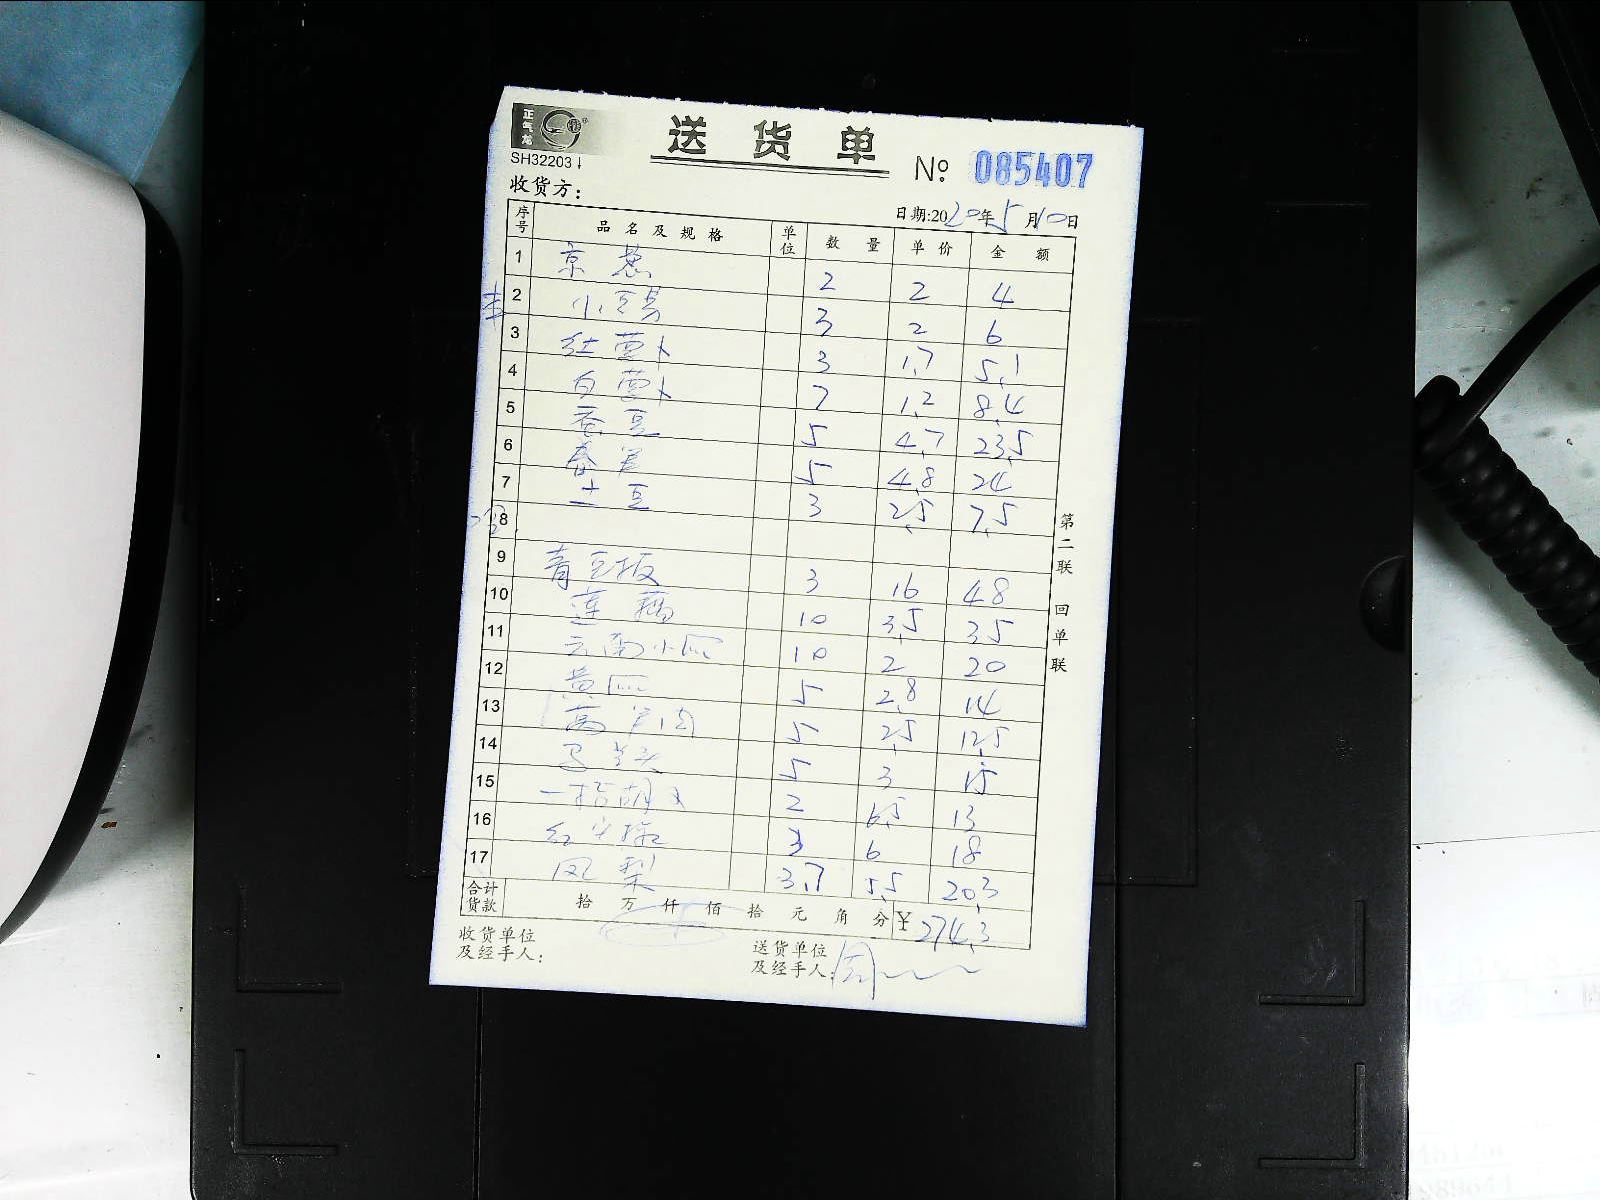 正气龙
SH32203
送货单
No 085407
收货方：
日期:2020年5月10日
序号 品名及规格 单位 数量 单价 金额
1 京葱 2 2 4
2 小豆芽 3 2 6
3 红萝卜 3 1.7 5.1
4 白萝卜 7 1.2 8.4
5 蚕豆 5 4.7 23.5
6 5 4.8 24
7 土豆 3 2.5 7.5
8
9 青豆板 3 16 48
10 莲藕 10 3.5 35
11 云南小瓜 10 2 20
12 黄瓜 5 2.8 14
13 5 2.5 12.5
14 5 3 15
15 2 6.5 13
16 3 6 18
17 凤梨 3.7 5.5 20.3
合计货款 拾 万 仟 佰 拾 元 角 分 ¥ 274.3
收货单位及经手人：
送货单位及经手人：
第二联 回单联